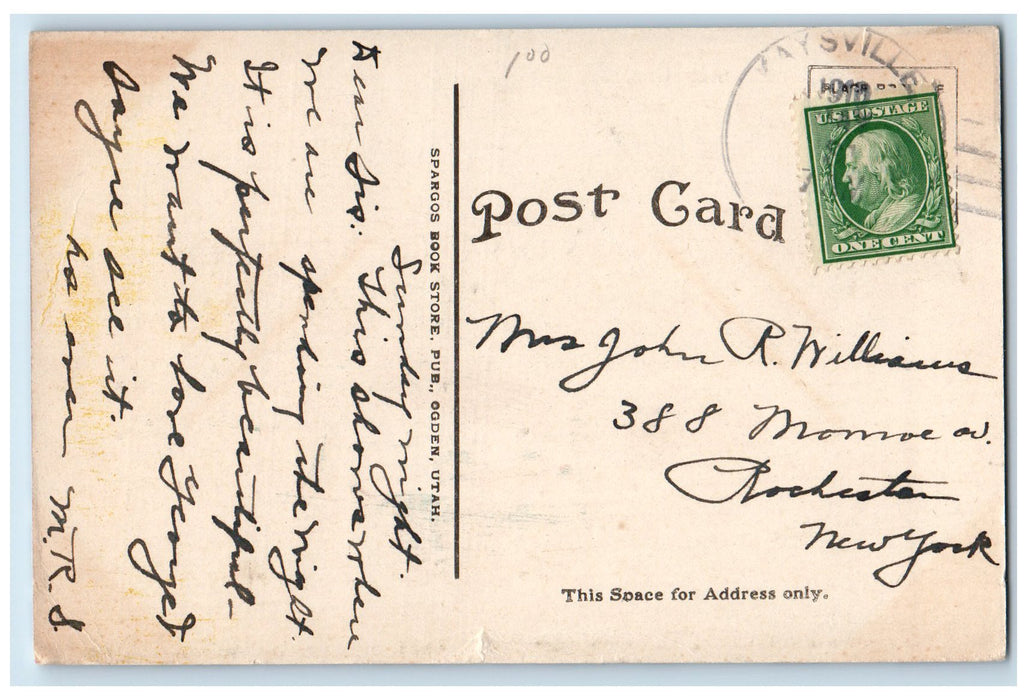 100
Sunday night.
Dear Sis: This shows where
we are spending the night.
It is perfectly beautiful-
We want to have George &
Sayre see it.
as ever M. R. S.
SPARGOS BOOK STORE, PUB., OGDEN, UTAH.
Post Card
AYSVILLE
1910
U.S. POSTAGE
ONE CENT
Mrs John R. Williams
388 Monroe av.
Rochester
New York
This Space for Address only.